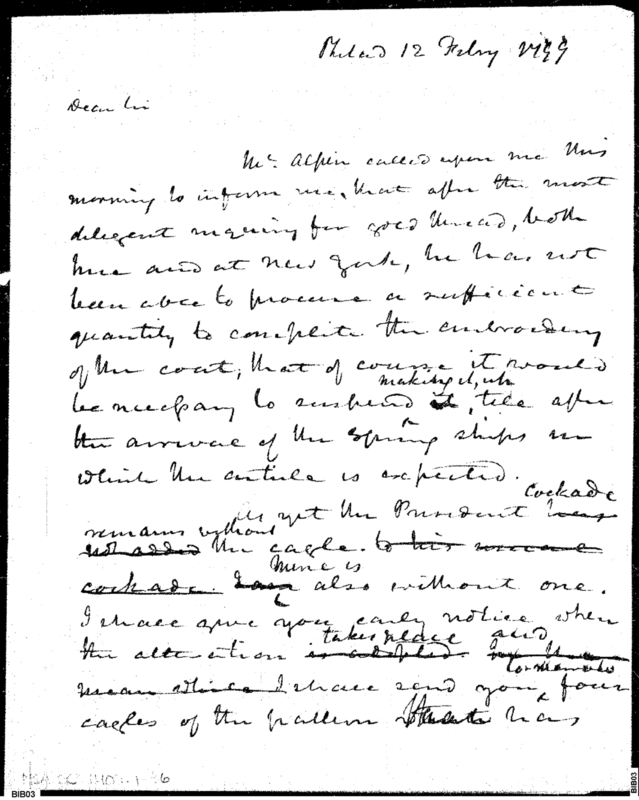 Philad 12 Febry 1799
Dear Sir
Mr. Alpin called upon me this
morning to inform me, that after the most
diligent inquiry for gold thread, both
here and at New York, he has not
been able to procure a sufficient
quantity to complete the embroidery
of the coat; that of course it would
making it up
be necessary to suspend it, till after
the arrival of the spring ships in
which the article is expected.
cockade
As yet the President has
remains without
not added the eagle. to his
Mine is
cockade. I am also without one.
I shall give you early notice when
takes place and
the alteration is adopted.
mean while I shall send you four
eagles of the pattern that has
BIB03
BIB03